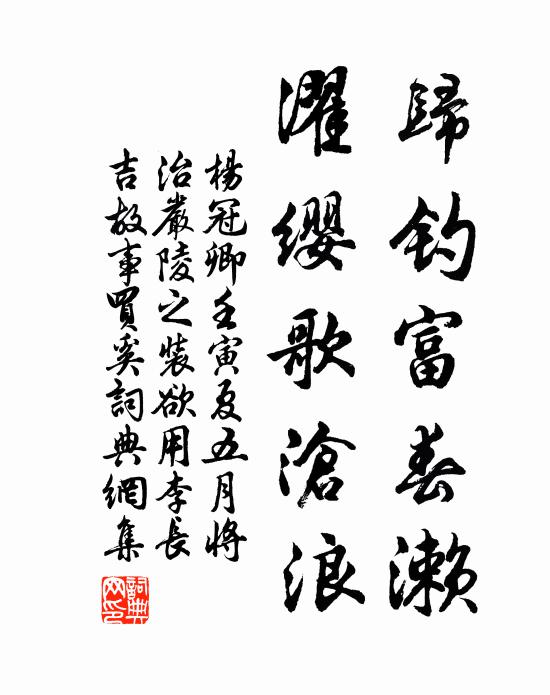 歸釣富春瀨
濯纓歌滄浪
楊冠卿壬寅夏五月將
治嚴陵之裝欲用李長
吉故事買奚詞典網集
詞典
网印